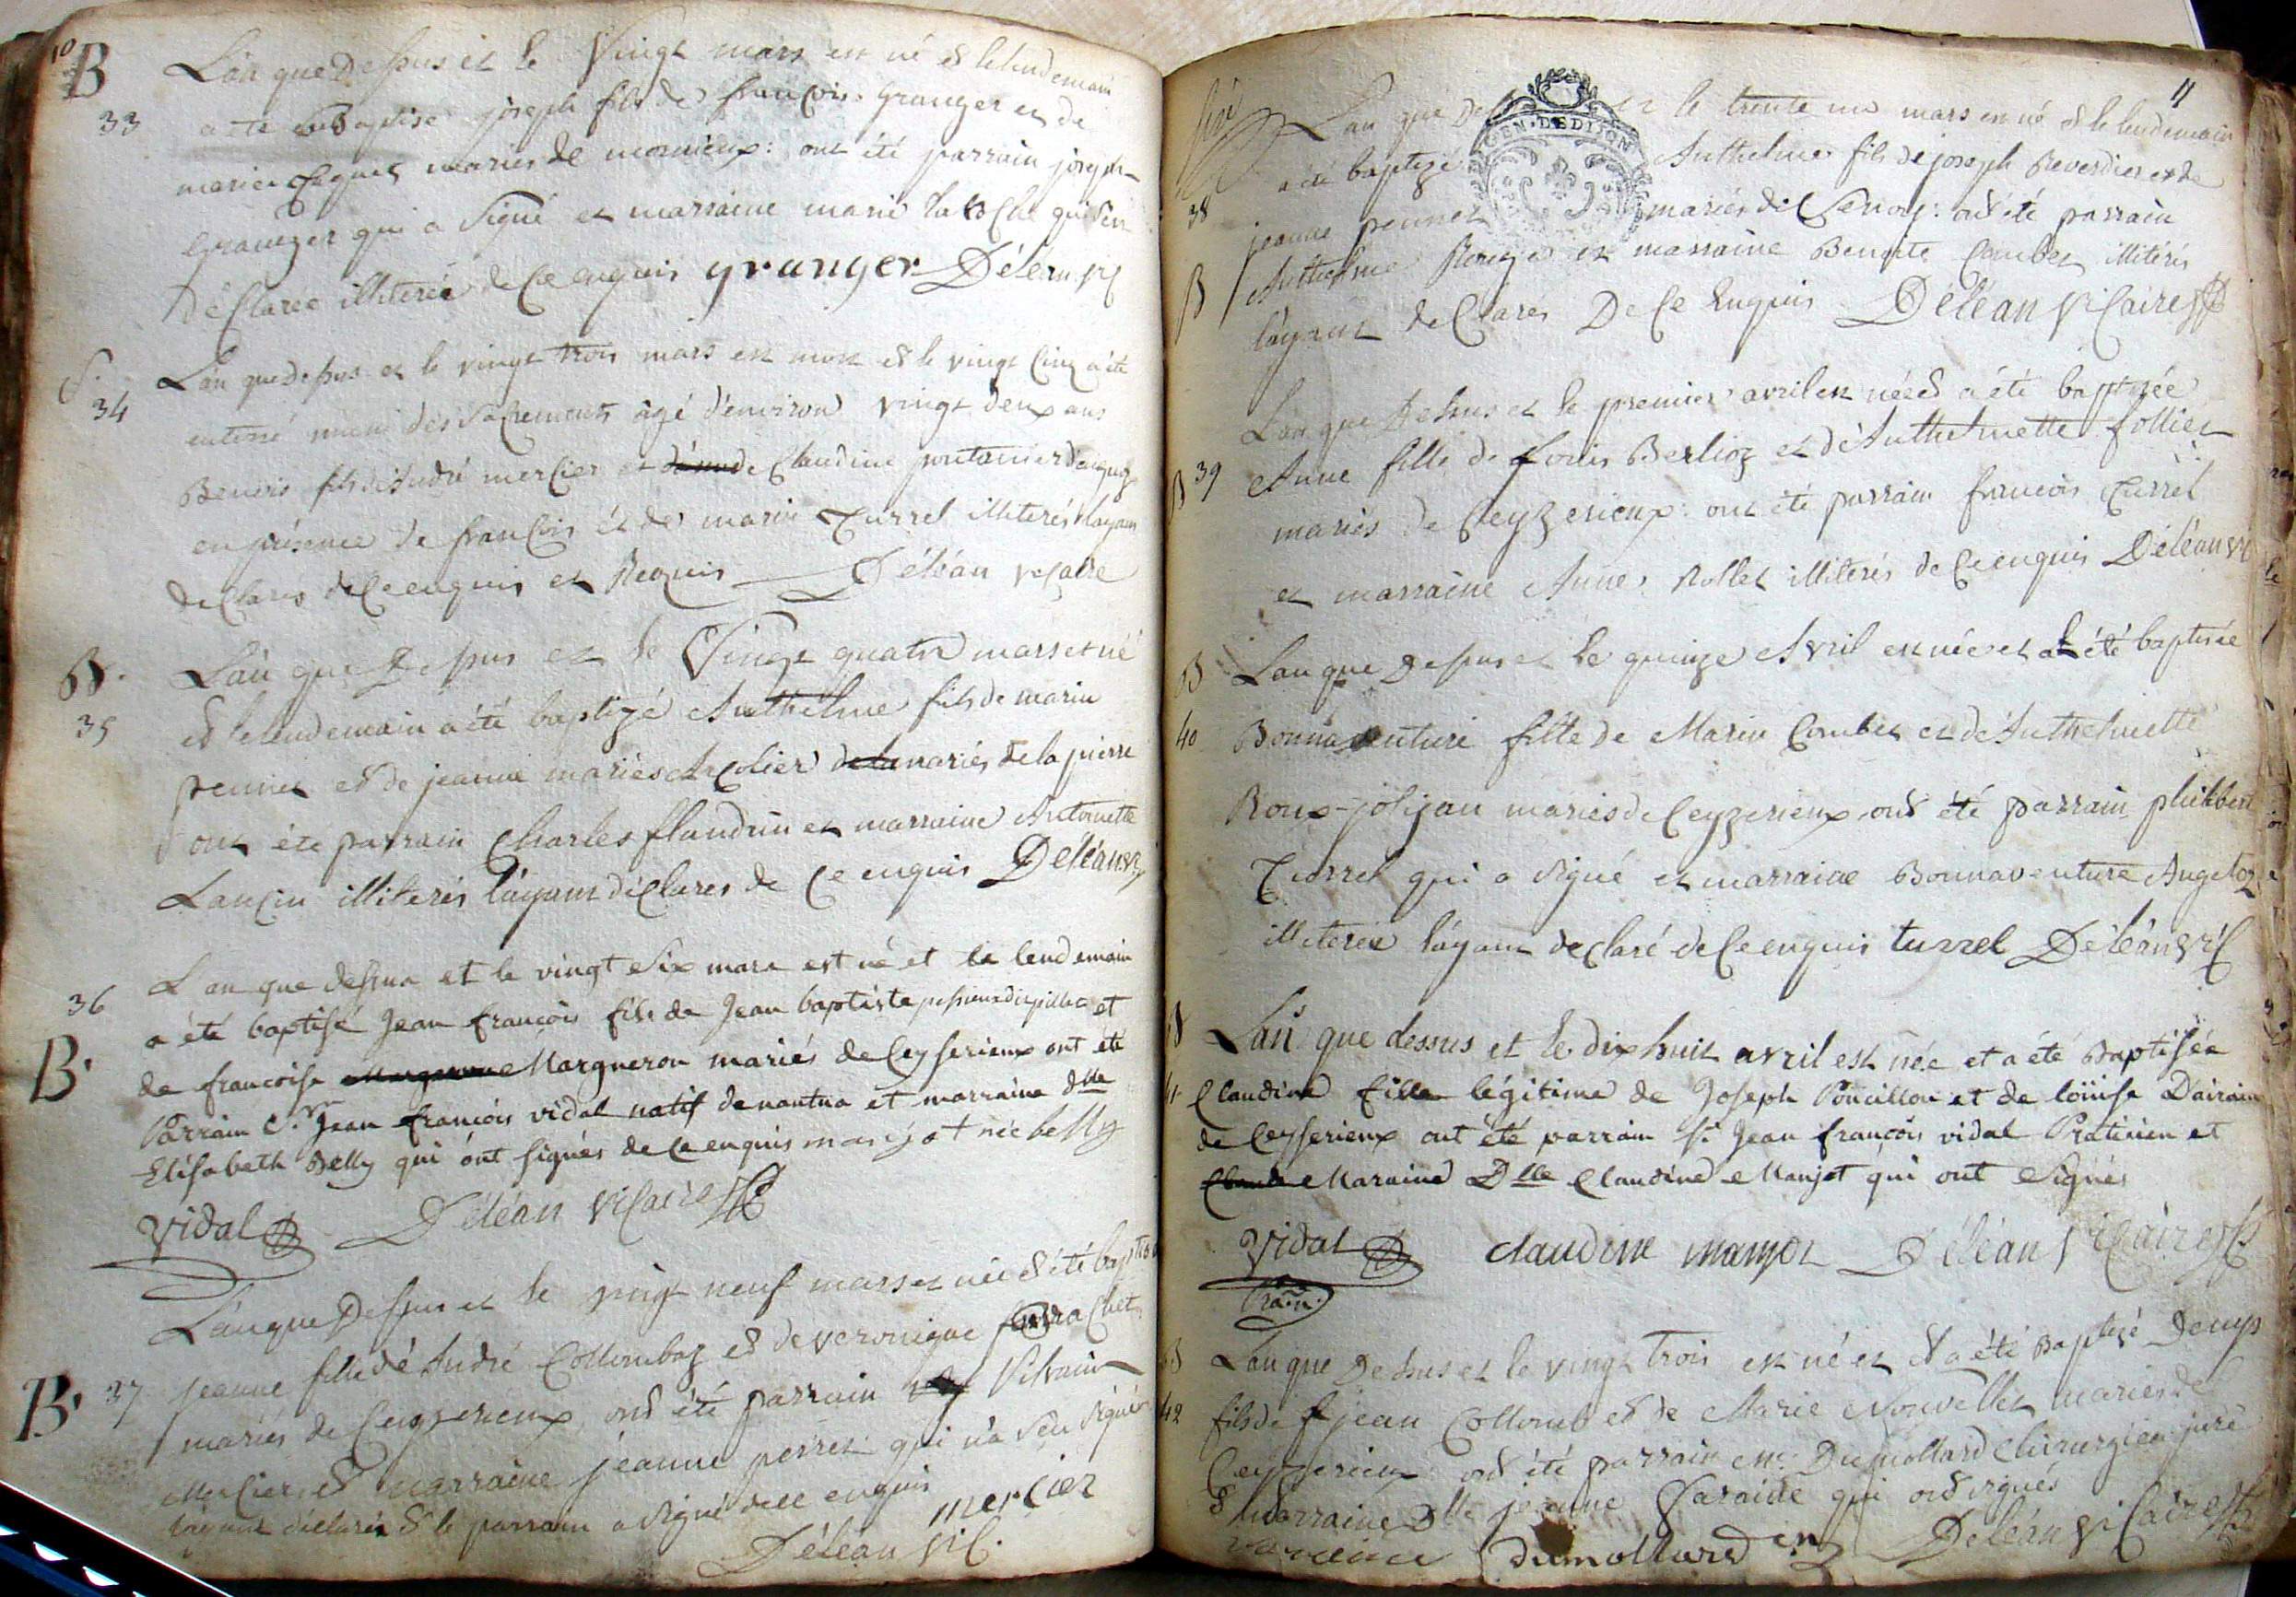 10
B
33
L'an que Dessus et le Vingt mars est né et le lendemain
a été baptisé joseph fils de françois Granger et de
marie mariés de mornieux : ont été parrain joseph
Granger qui a signé et marraine marie qui s'est
déClarée illiterée de Ce enquis granger Déléan vic
S.
34
L'an que Dessus et le vingt trois mars est mort et le vingt Cinq a été
enterré muni des saCrements âgé d'environ vingt deux ans
Benoit fils d'André merCier et de Claudine
en présence de franCois et de marin Turrel illiterés l'ayant
déClarés de Ce enquis et Requis Déléan viCaire
B.
35
L'an que Dessus et le Vingt quatre mars est né
et le lendemain a été baptizé Anthelme fils de marin
pennet et de jeanne mariés de la pierre
ont été parrain Charles flandrin et marraine Antoinette
LanCin illiterés l'ayant déClarés de Ce enquis Déléan vic
36
B.
L'an que dessus et le vingt Six mars est né et le lendemain
a été baptisé Jean françois fils de Jean baptiste et
de françoise Margueron mariés de Ceyserieux ont été
Parrain S.r Jean françois vidal natif de nantua et marraine dlle
Elisabeth Belly qui ónt signés de Ce enquis manjot née belly
vidal Déléan viCaire
B.
37
L'an que Dessus et le vingt neuf mars est née et été baptisée
jeanne fille dé André Collomboz et de veronique
mariés de Ceyzerieux, ont été parrain
merCier, et marraine jeanne perret qui n'a sçu signer
l'ayant déclarée et le parrain a signé de Ce enquis
merCier
Déléan viC.
11
38
B
L'an que Dessus et le trente un mars est né et le lendemain
a été baptizé Anthelme fils de joseph Reverdier et de
jeanne pennet mariés de : ont été parrain
Anthelme et marraine Benoite Combet illiterés
l'ayant déClarés De Ce Enquis Déléan viCaire
GEN. DE DIJON
B
39
L'an que Dessus et le premier avril est née et a été baptisée
Anne fille de Louis Berlioz et d'Anthelmette follier
mariés de Ceyzerieux : ont été parrain françois Turrel
et marraine Anne Rollet illiterés de Ce enquis Déléan vic
B
40
L'an que Dessus et le quinze Avril est née et a été baptisée
Bonnaventure fille de Marin Combet et d'Anthelmette
Roux-jolijan mariés de Ceyzerieux, ont été parrain philibert
Turrel qui a signé et marraine Bonnaventure Angeloz
illiterée l'ayant déClaré de Ce enquis turrel Déléan viC
B
41
L'an que dessus et le dix huit avril est née et a été Baptisée
Claudine fille légitime de Joseph Poncillon et de loüise Dairain
de Ceyserieux ont été parrain Sr Jean françois vidal Praticien et
Maraine Dlle Claudine Manjot qui ont Signés
vidal claudine manjot Déléan viCaire
Pra.n.
B
42
L'an que Dessus et le vingt trois est né et a été Baptizé Denys
fils de jean Collomb et de Marie Nouvellet mariés de
Ceyzerieux : ont été parrain mr. Dumollard Chirurgien juré
et Marraine Dlle jeanne Varaine qui ont signés
varaine dumollard Déléan viCaire